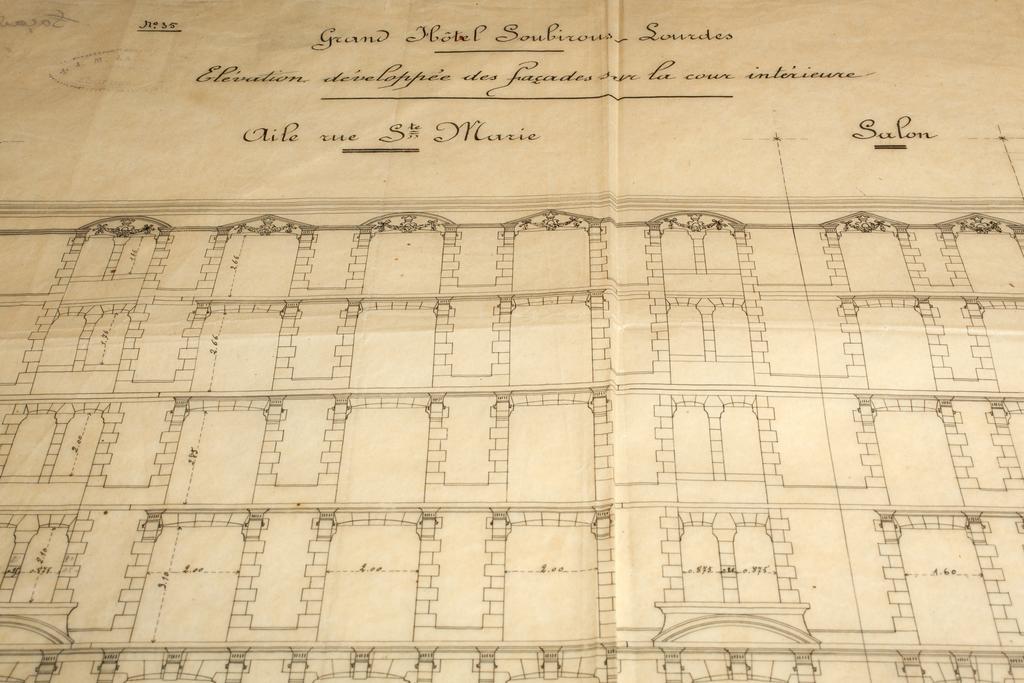 Nº 35
Grand Hôtel Soubirous - Lourdes
Elévation développée des façades sur la cour intérieure
Aile rue Ste Marie
Salon
2.66
2.66
2.00
2.85
2.10
3.10
2.00
2.00
2.00
0.875
0.875
1.60